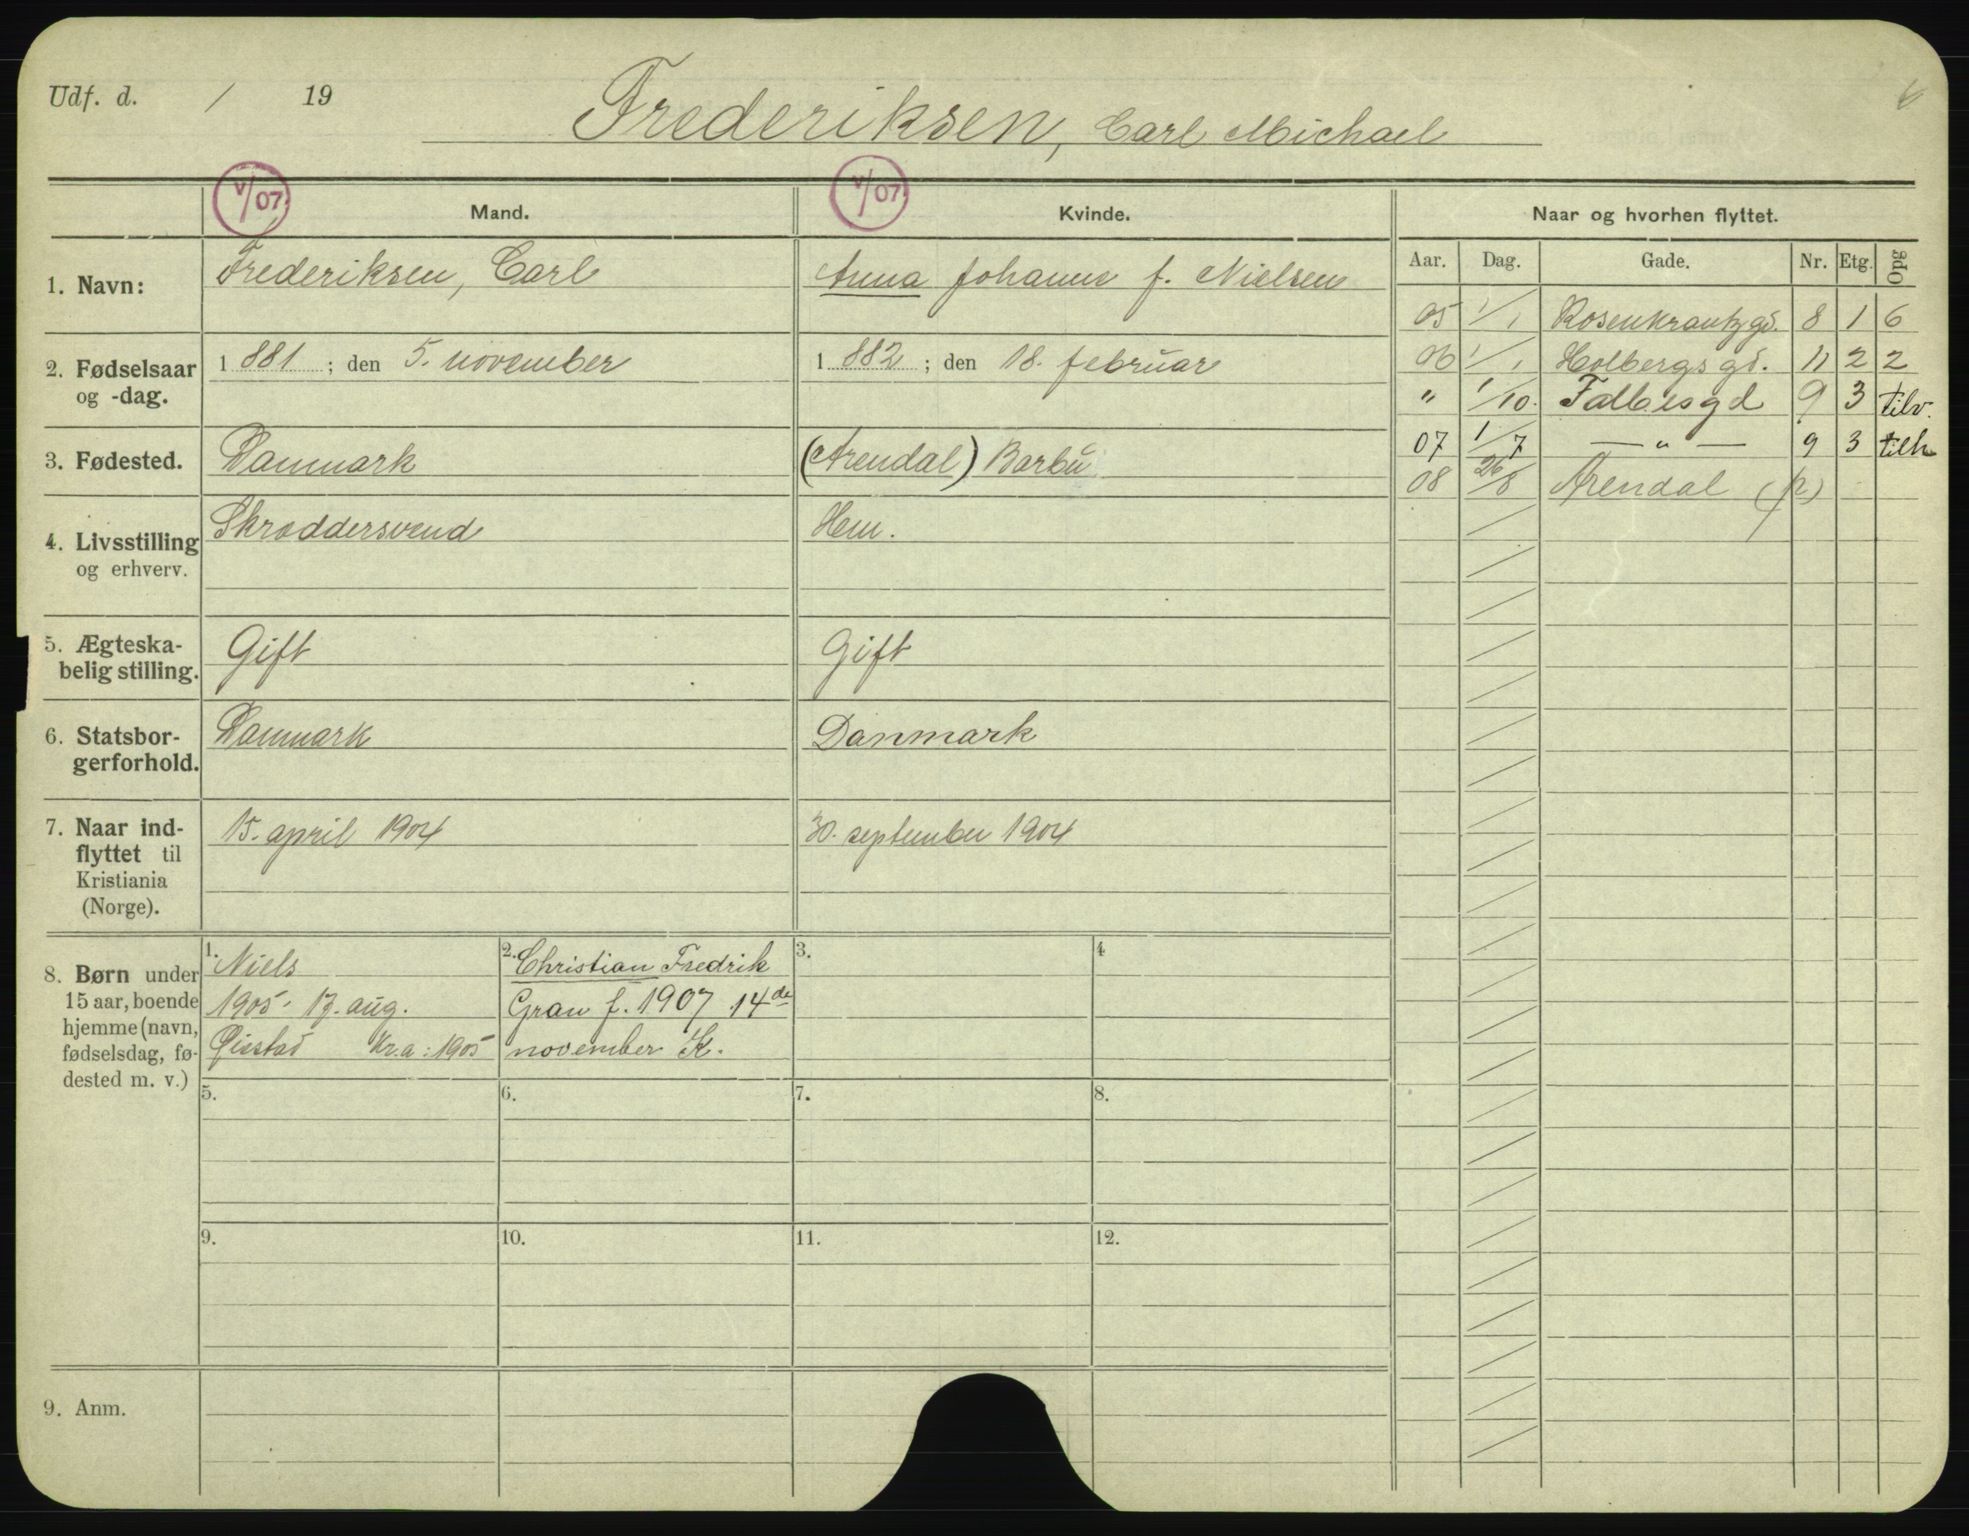 Udf. d. / 19
Frederiksen, Carl Michael
V/07. Mand.
V/07. Kvinde.
Naar og hvorhen flyttet.
Aar. Dag. Gade. Nr. Etg. Opg
1. Navn: Frederiksen, Carl
Anna Johanne f. Nielsen
05 1/1 Rosenkrantzgd. 8 1 6
2. Fødselsaar og -dag. 1881; den 5. november
1882; den 18. februar
06 1/1 Holbergs gd. 11 2 2
" 1/10. Falbesgd 9 3 tilv.
3. Fødested. Danmark
(Arendal) Barbu
07 1/7 — " — 9 3 tilh
08 26/8 Arendal (p)
4. Livsstilling og erhverv. Skræddersvend
Hem.
5. Ægteska-
belig stilling. Gift
Gift
6. Statsbor-
gerforhold. Danmark
Danmark
7. Naar ind-
flyttet til
Kristiania
(Norge).
15. april 1904
30. september 1904
8. Børn under
15 aar, boende
hjemme (navn,
fødselsdag, fø-
dested m. v.)
1. Niels
1905. 17. aug.
Øiestad Kr.a: 1905
2. Christian Fredrik
Gran f. 1907 14de
november K.
3.
4
5.
6.
7.
8.
9.
10.
11.
12.
9. Anm.